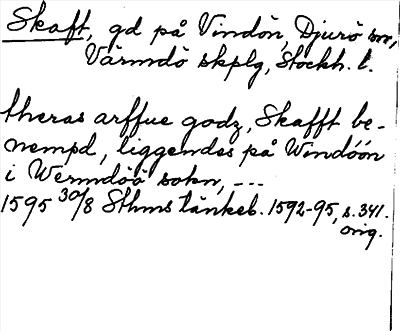 Skaft, gd på Vindön, Djurö sn,
Värmdö skplg, Stockh. l.
theras arffue godz, Skafft be-
nempd, liggendes på Windöön
i Wermdöö sokn, ---
1595 30/8 Sthms tänkeb. 1592-95, s. 341.
orig.